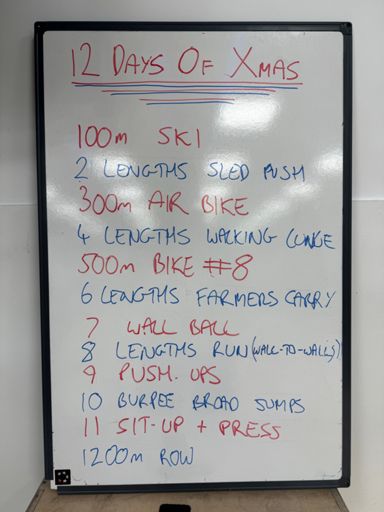 12 DAYS OF XMAS
100m SKI
2 LENGTHS SLED PUSH
300m AIR BIKE
4 LENGTHS WALKING LUNGE
500m BIKE #8
6 LENGTHS FARMERS CARRY
7 WALL BALL
8 LENGTHS RUN (WALL-TO-WALLS)
9 PUSH. UPS
10 BURPEE BROAD JUMPS
11 SIT-UP + PRESS
1200m ROW